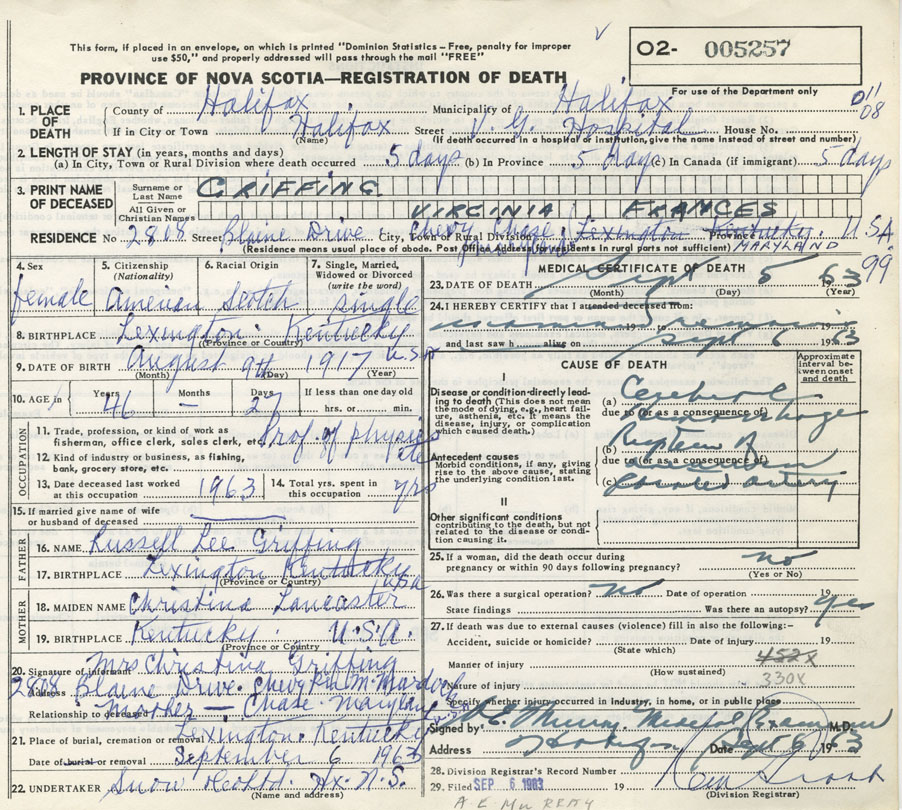 This form, if placed in an envelope, on which is printed "Dominion Statistics – Free, penalty for improper
use $50," and properly addressed will pass through the mail "FREE"
O2- 005257
PROVINCE OF NOVA SCOTIA—REGISTRATION OF DEATH
For use of the Department only
011
08
1. PLACE OF DEATH
County of Halifax Municipality of Halifax
If in City or Town Halifax Street V. G. Hospital House No.
(Name) (If death occurred in a hospital or institution, give the name instead of street and number)
2. LENGTH OF STAY (in years, months and days)
(a) In City, Town or Rural Division where death occurred 5 days (b) In Province 5 days (c) In Canada (if immigrant) 5 days
3. PRINT NAME OF DECEASED
Surname or Last Name GRIFFING
All Given or Christian Names VIRGINIA FRANCES
RESIDENCE No 2808 Street Blaine Drive City, Town or Rural Division Chevy Chase Lexington Province Kentucky U.S.A.
MARYLAND
(Residence means usual place of abode. Post Office Address for residents in rural parts not sufficient)
99
4. Sex female
5. Citizenship (Nationality) American
6. Racial Origin Scotch
7. Single, Married, Widowed or Divorced (write the word) single
8. BIRTHPLACE Lexington Kentucky
(Province or Country) U.S.A
9. DATE OF BIRTH August 9th 1917
(Month) (Day) (Year)
10. AGE in Years 46 Months – Days 27 If less than one day old hrs. or min.
OCCUPATION
11. Trade, profession, or kind of work as fisherman, office clerk, sales clerk, etc. Prof. of physics
12. Kind of industry or business, as fishing, bank, grocery store, etc.
13. Date deceased last worked at this occupation 1963
14. Total yrs. spent in this occupation yrs
15. If married give name of wife or husband of deceased
FATHER
16. NAME Russell Lee Griffing
17. BIRTHPLACE Lexington Kentucky USA
(Province or Country)
MOTHER
18. MAIDEN NAME Christina Lancaster
19. BIRTHPLACE Kentucky U.S.A.
(Province or Country)
20. Signature of informant Mrs Christina Griffing
Address 2808 Blaine Drive. Chevy
Relationship to deceased Mother — Chase. Maryland
21. Place of burial, cremation or removal Lexington. Kentucky
Date of burial or removal September 6 1963
22. UNDERTAKER Snow Hx. N.S.
(Name and address)
MEDICAL CERTIFICATE OF DEATH
23. DATE OF DEATH Sept 5 1963
(Month) (Day) (Year)
24. I HEREBY CERTIFY that I attended deceased from:
19 to 19
and last saw h alive on Sept 6 1963
CAUSE OF DEATH
Approximate interval between onset and death
I
Disease or condition directly leading to death (This does not mean the mode of dying, e.g., heart failure, asthenia, etc. It means the disease, injury, or complication which caused death.)
(a) Cerebral Hemorrhage
due to (or as a consequence of)
Antecedent causes
Morbid conditions, if any, giving rise to the above cause, stating the underlying condition last.
(b) Rupture of
due to (or as a consequence of)
(c) artery
II
Other significant conditions contributing to the death, but not related to the disease or condition causing it.
25. If a woman, did the death occur during pregnancy or within 90 days following pregnancy? no
(Yes or No)
26. Was there a surgical operation? No Date of operation 19
State findings Was there an autopsy? yes
27. If death was due to external causes (violence) fill in also the following:-
Accident, suicide or homicide? Date of injury 19
(State which)
Manner of injury 452X
(How sustained)
330X
Nature of injury
Specify whether injury occurred in industry, in home, or in public place
Signed by Murray Medical Examiner M.D.
Address Halifax Date Sept 6 1963
28. Division Registrar's Record Number
29. Filed SEP 6 1963 19
(Division Registrar)
A E MURRAY